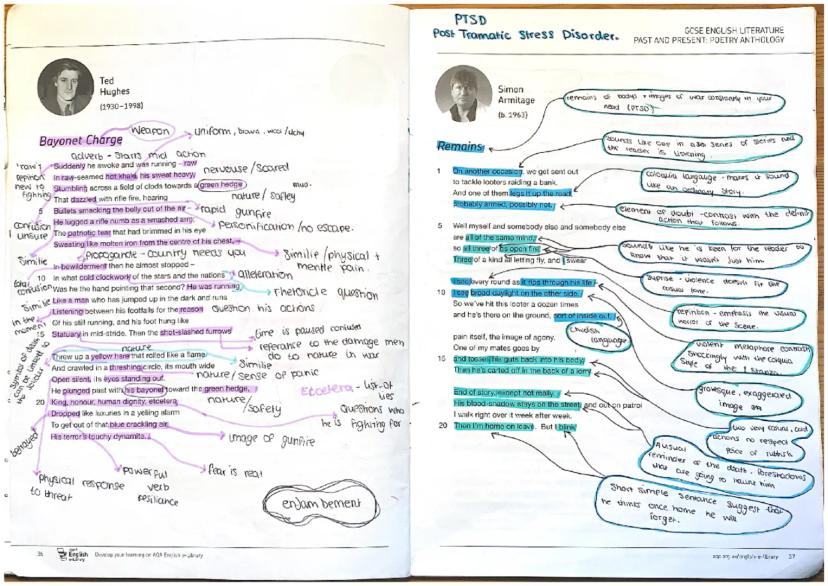 Ted
Hughes
(1930–1998)
Bayonet Charge
Weapon
uniform, brown, wool/itchy
adverb - starts mid action
Suddenly he awoke and was running – raw
In raw-seamed hot khaki, his sweat heavy,
Stumbling across a field of clods towards a green hedge
That dazzled with rifle fire, hearing
5 Bullets smacking the belly out of the air –
He lugged a rifle numb as a smashed arm;
The patriotic tear that had brimmed in his eye
Sweating like molten iron from the centre of his chest, –
In bewilderment then he almost stopped –
10 In what cold clockwork of the stars and the nations
Was he the hand pointing that second? He was running
Like a man who has jumped up in the dark and runs
Listening between his footfalls for the reason
Of his still running, and his foot hung like
15 Statuary in mid-stride. Then the shot-slashed furrows
Threw up a yellow hare that rolled like a flame
And crawled in a threshing circle, its mouth wide
Open silent, its eyes standing out.
He plunged past with his bayonet toward the green hedge,
20 King, honour, human dignity, etcetera
Dropped like luxuries in a yelling alarm
To get out of that blue crackling air
His terror's touchy dynamite.
'raw'
new to
fighting
nervouse/scared
nature/safley
rapid gunfire
confusion
unsure
Personification/no escape.
Similie
propaganda - country needs you
Similie/physical +
mentle pain.
alleteration
confusion
rhetoricle question
Similie
Question his actions
in the
moment
time is paused
referance to the damage men
do to nature in war
nature
Similie
nature/sense of panic
Etcetera - list of
lies
nature/
safely
Questions who
he is fighting for
image of gunfire
betrayed
fear is real
physical response
to threat
powerful
verb
resiliance
enjambement
36
English
e-Library
Develop your learning on AQA English e-Library
PTSD
Post Tramatic Stress Disorder.
GCSE ENGLISH LITERATURE
PAST AND PRESENT: POETRY ANTHOLOGY
Simon
Armitage
(b. 1963)
remains of bodys + images of war constantly in your
head (PTSD)
Remains
sounds like one in a series of stories and
the reader is listening.
1 On another occasion, we get sent out
to tackle looters raiding a bank.
And one of them legs it up the road,
probably armed, possibly not.
coloquia langauge - makes it sound
like an ordinary story.
element of doubt - contrasts with the definite
action they follows.
5 Well myself and somebody else and somebody else
are all of the same mind,
so all three of us open fire.
Three of a kind all letting fly, and I swear
sounds like he is keen for the reader to
know that it wasnt just him
suprise - violence doesnt fit the
casual tone.
I see every round as it rips through his life –
10 I see broad daylight on the other side.
So we've hit this looter a dozen times
and he's there on the ground, sort of inside out,
repitition - emphasis the visual
horror of the scene.
Childish
language
violent metaphore contrasts
shockingly with the coloquia
style of the 1 stanza.
pain itself, the image of agony.
One of my mates goes by
15 and tosses his guts back into his body.
Then he's carted off in the back of a lorry.
grotesque, exaggerated
image
two very casual, cold
actions no respect
piece of rubbish
End of story, except not really.
His blood-shadow stays on the street, and out on patrol
I walk right over it week after week.
20 Then I'm home on leave. But I blink
A visual
reminder of the death. foreshadows
that are going to haunt him
Short simple sentance suggest that
he thinks once home he will
forget.
aqa.org.uk/english-e-library 37